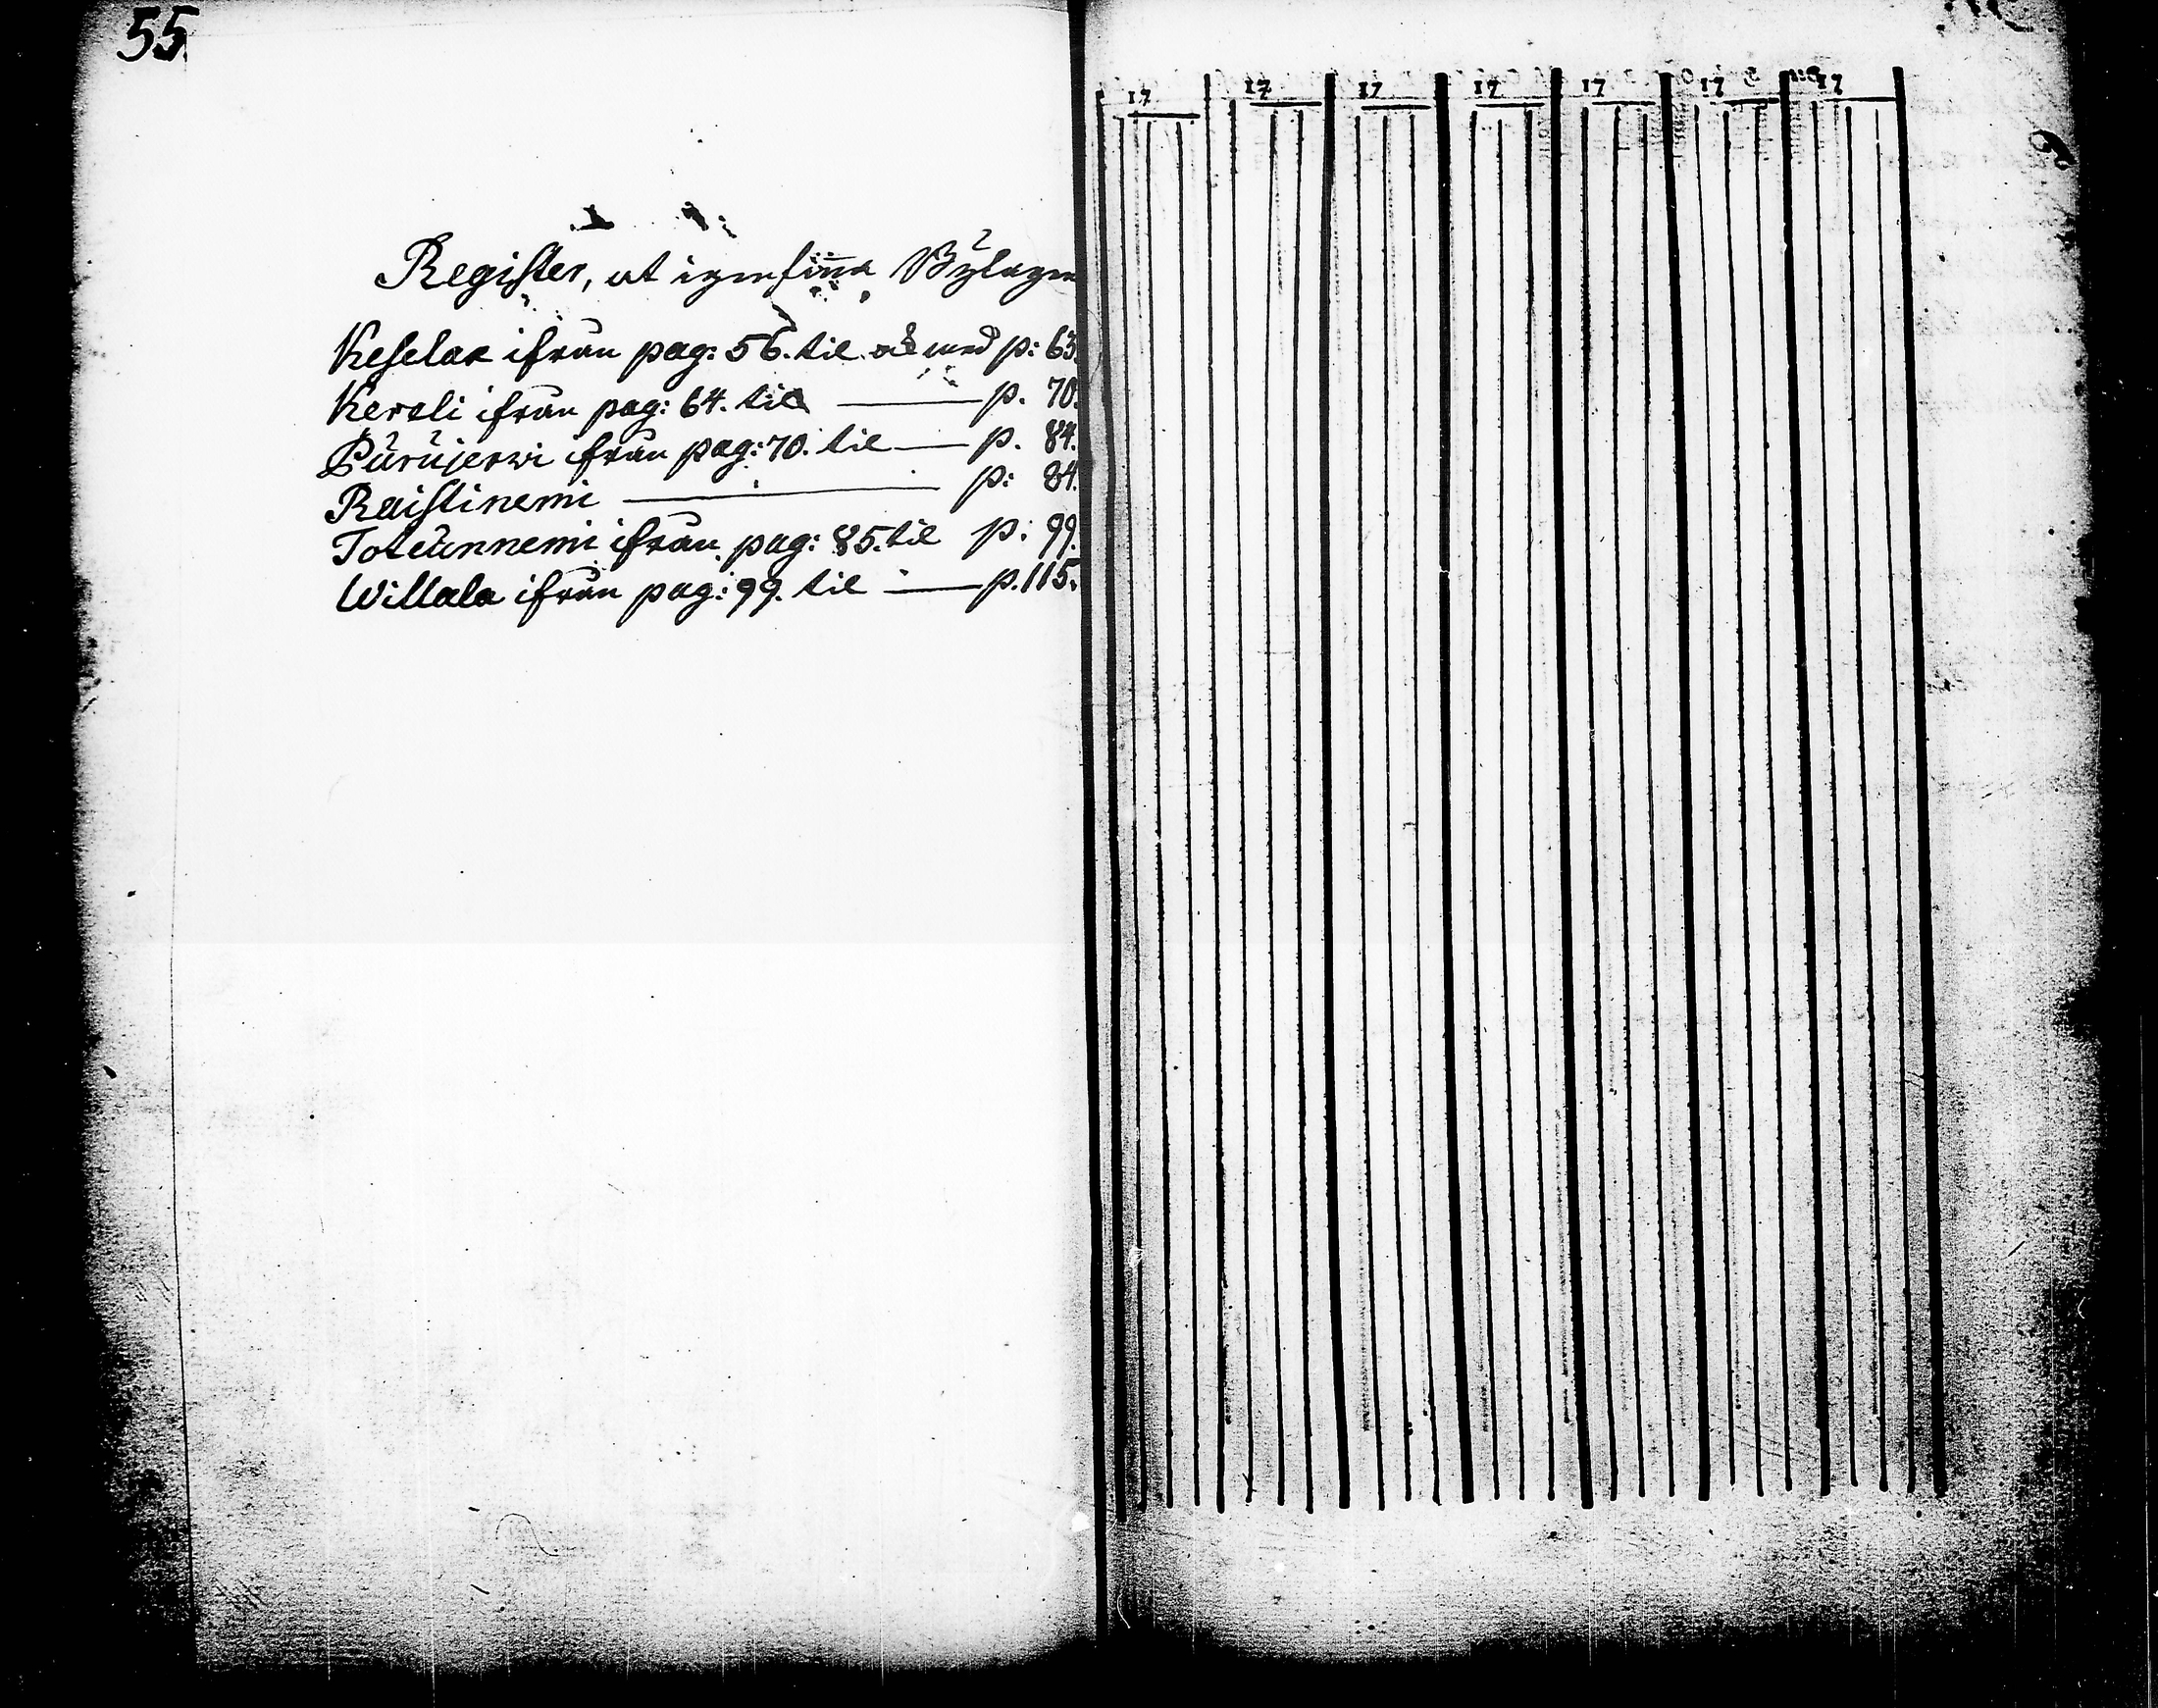 55.
Register, at igenfinna Bylagen
Keselax ifrån pag: 56. til och med p: 63.
Kerali ifrån pag: 64. til — p. 70.
Purujerwi ifrån pag: 70. til — p. 84.
Raistinemi — p: 84.
Totcunnemi ifrån pag: 85. til p: 99.
Willala ifrån pag: 99. til — p. 115.
17 17 17 17 17 17 17